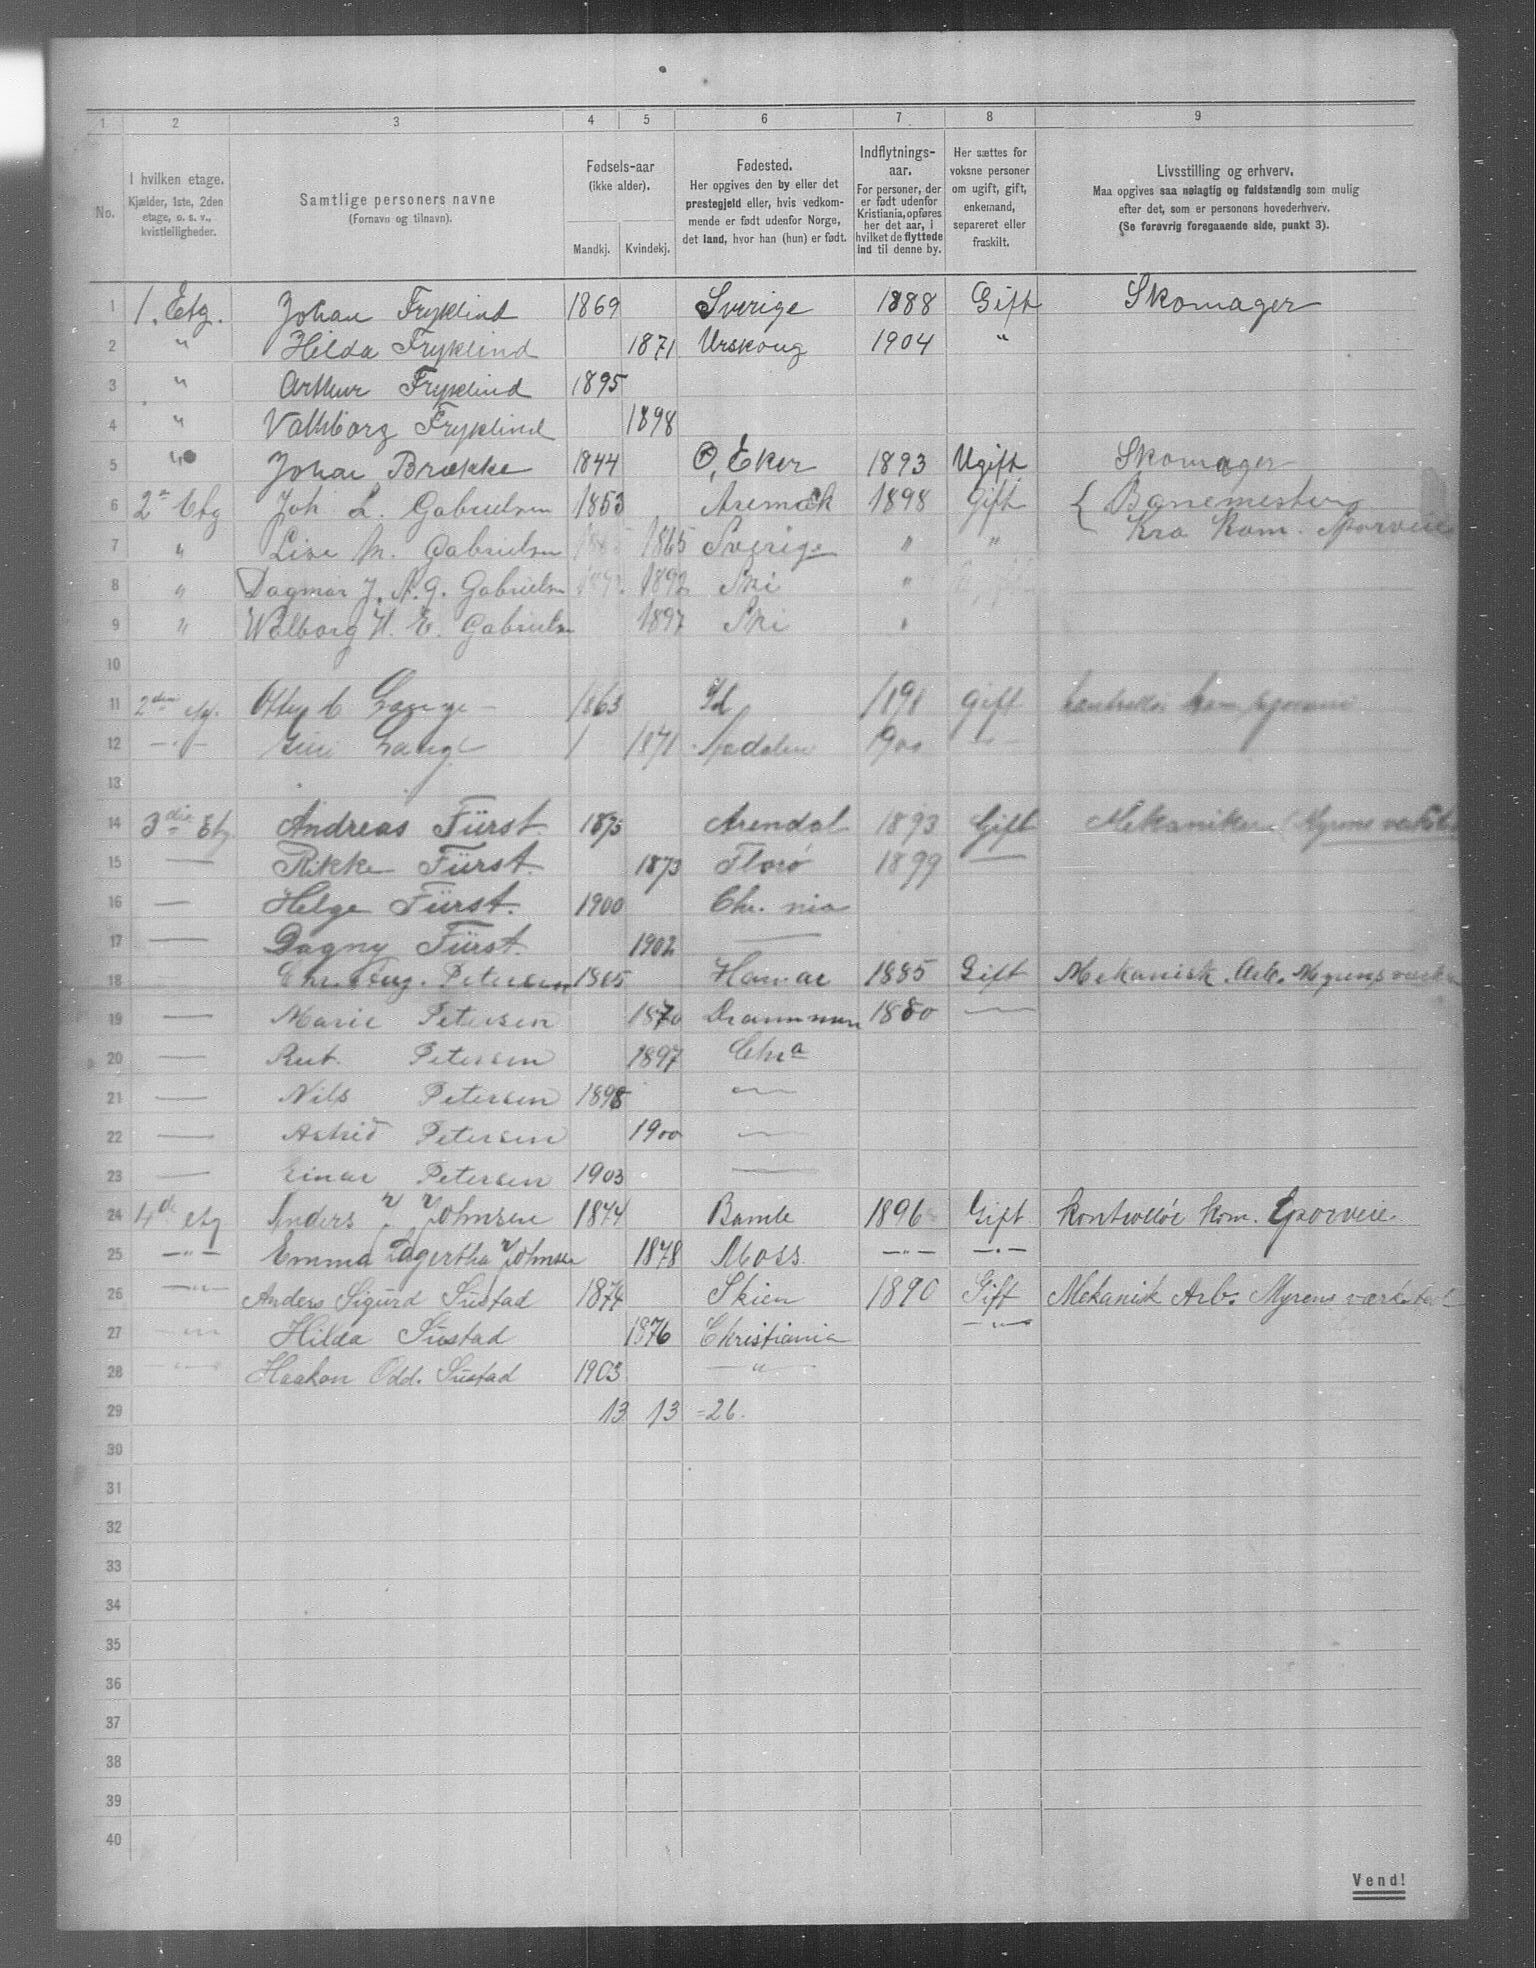 1 2 3 4 5 6 7 8 9
No.
I hvilken etage.
Kjælder, 1ste, 2den
etage, o. s. v.,
kvistleiligheder.
Samtlige personers navne
(Fornavn og tilnavn).
Fødsels-aar
(ikke alder).
Mandkj. Kvindekj.
Fødested.
Her opgives den by eller det
prestegjeld eller, hvis vedkom-
mende er født udenfor Norge,
det land, hvor han (hun) er født.
Indflytnings-
aar.
For personer, der
er født udenfor
Kristiania, opføres
her det aar, i
hvilket de flyttede
ind til denne by.
Her sættes for
voksne personer
om ugift, gift,
enkemand,
separeret eller
fraskilt.
Livsstilling og erhverv.
Maa opgives saa nøiagtig og fuldstændig som mulig
efter det, som er personens hovederhverv.
(Se forøvrig foregaaende side, punkt 3).
1 1. Etg. Johan Fryklind 1869 Sverige 1888 Gift Skomager
2 " Hilda Fryklind 1871 Urskoug 1904 "
3 " Arthur Fryklind 1895
4 " Valhborg Fryklind 1898
5 " Johan Brække 1844 Ø, Eker 1893 Ugift Skomager
6 2 Etg Joh L. Gabrielsen 1853 Aremark 1898 Gift { Banemester
Kra Kom. Sporveie
7 " Lise M. Gabrielsen 1865 Sverige " "
8 " Dagmar J. A. G. Gabrielsen 1892 Ski "
9 " Walborg H. E. Gabrielsen 1897 Ski "
10
11 2den etg. Lange 1863 Id 1898 Gift
12 -"- Lange 1871 1900 -"-
13
14 3die Etg. Andreas Fürst. 1875 Arendal 1893 Gift Mekaniker (Myrens værksted
15 — Rikke Fürst. 1873 Florø 1899 —
16 — Helge Fürst. 1900 Chr. nia
17 — Dagny Fürst. 1902 —
18 Chr. Aug. Petersen 1865 Hamar 1885 Gift Mekanisk. Arb. Myrens værk
19 — Marie Petersen 1870 Drammen 1880 —
20 — Rut. Petersen 1897 Chra
21 — Nils Petersen 1898 —
22 — Astrid Petersen 1900 —
23 — Einar Petersen 1903 —
24 4de etg Anders J Johnsen 1874 Bamle 1896 Gift Kontrollør Kom. Sporveie.
25 -"- Emma Lagertha Johnsen 1878 Moss -"- -"-
26 -"- Anders Sigurd Sustad 1874 Skien 1890 Gift Mekanisk Arb. Myrens værksted
27 -"- Hilda Sustad 1876 Christiania -"-
28 -"- Haakon Odd. Sustad 1903 -"-
29 13 13 =26.
30
31
32
33
34
35
36
37
38
39
40
Vend!